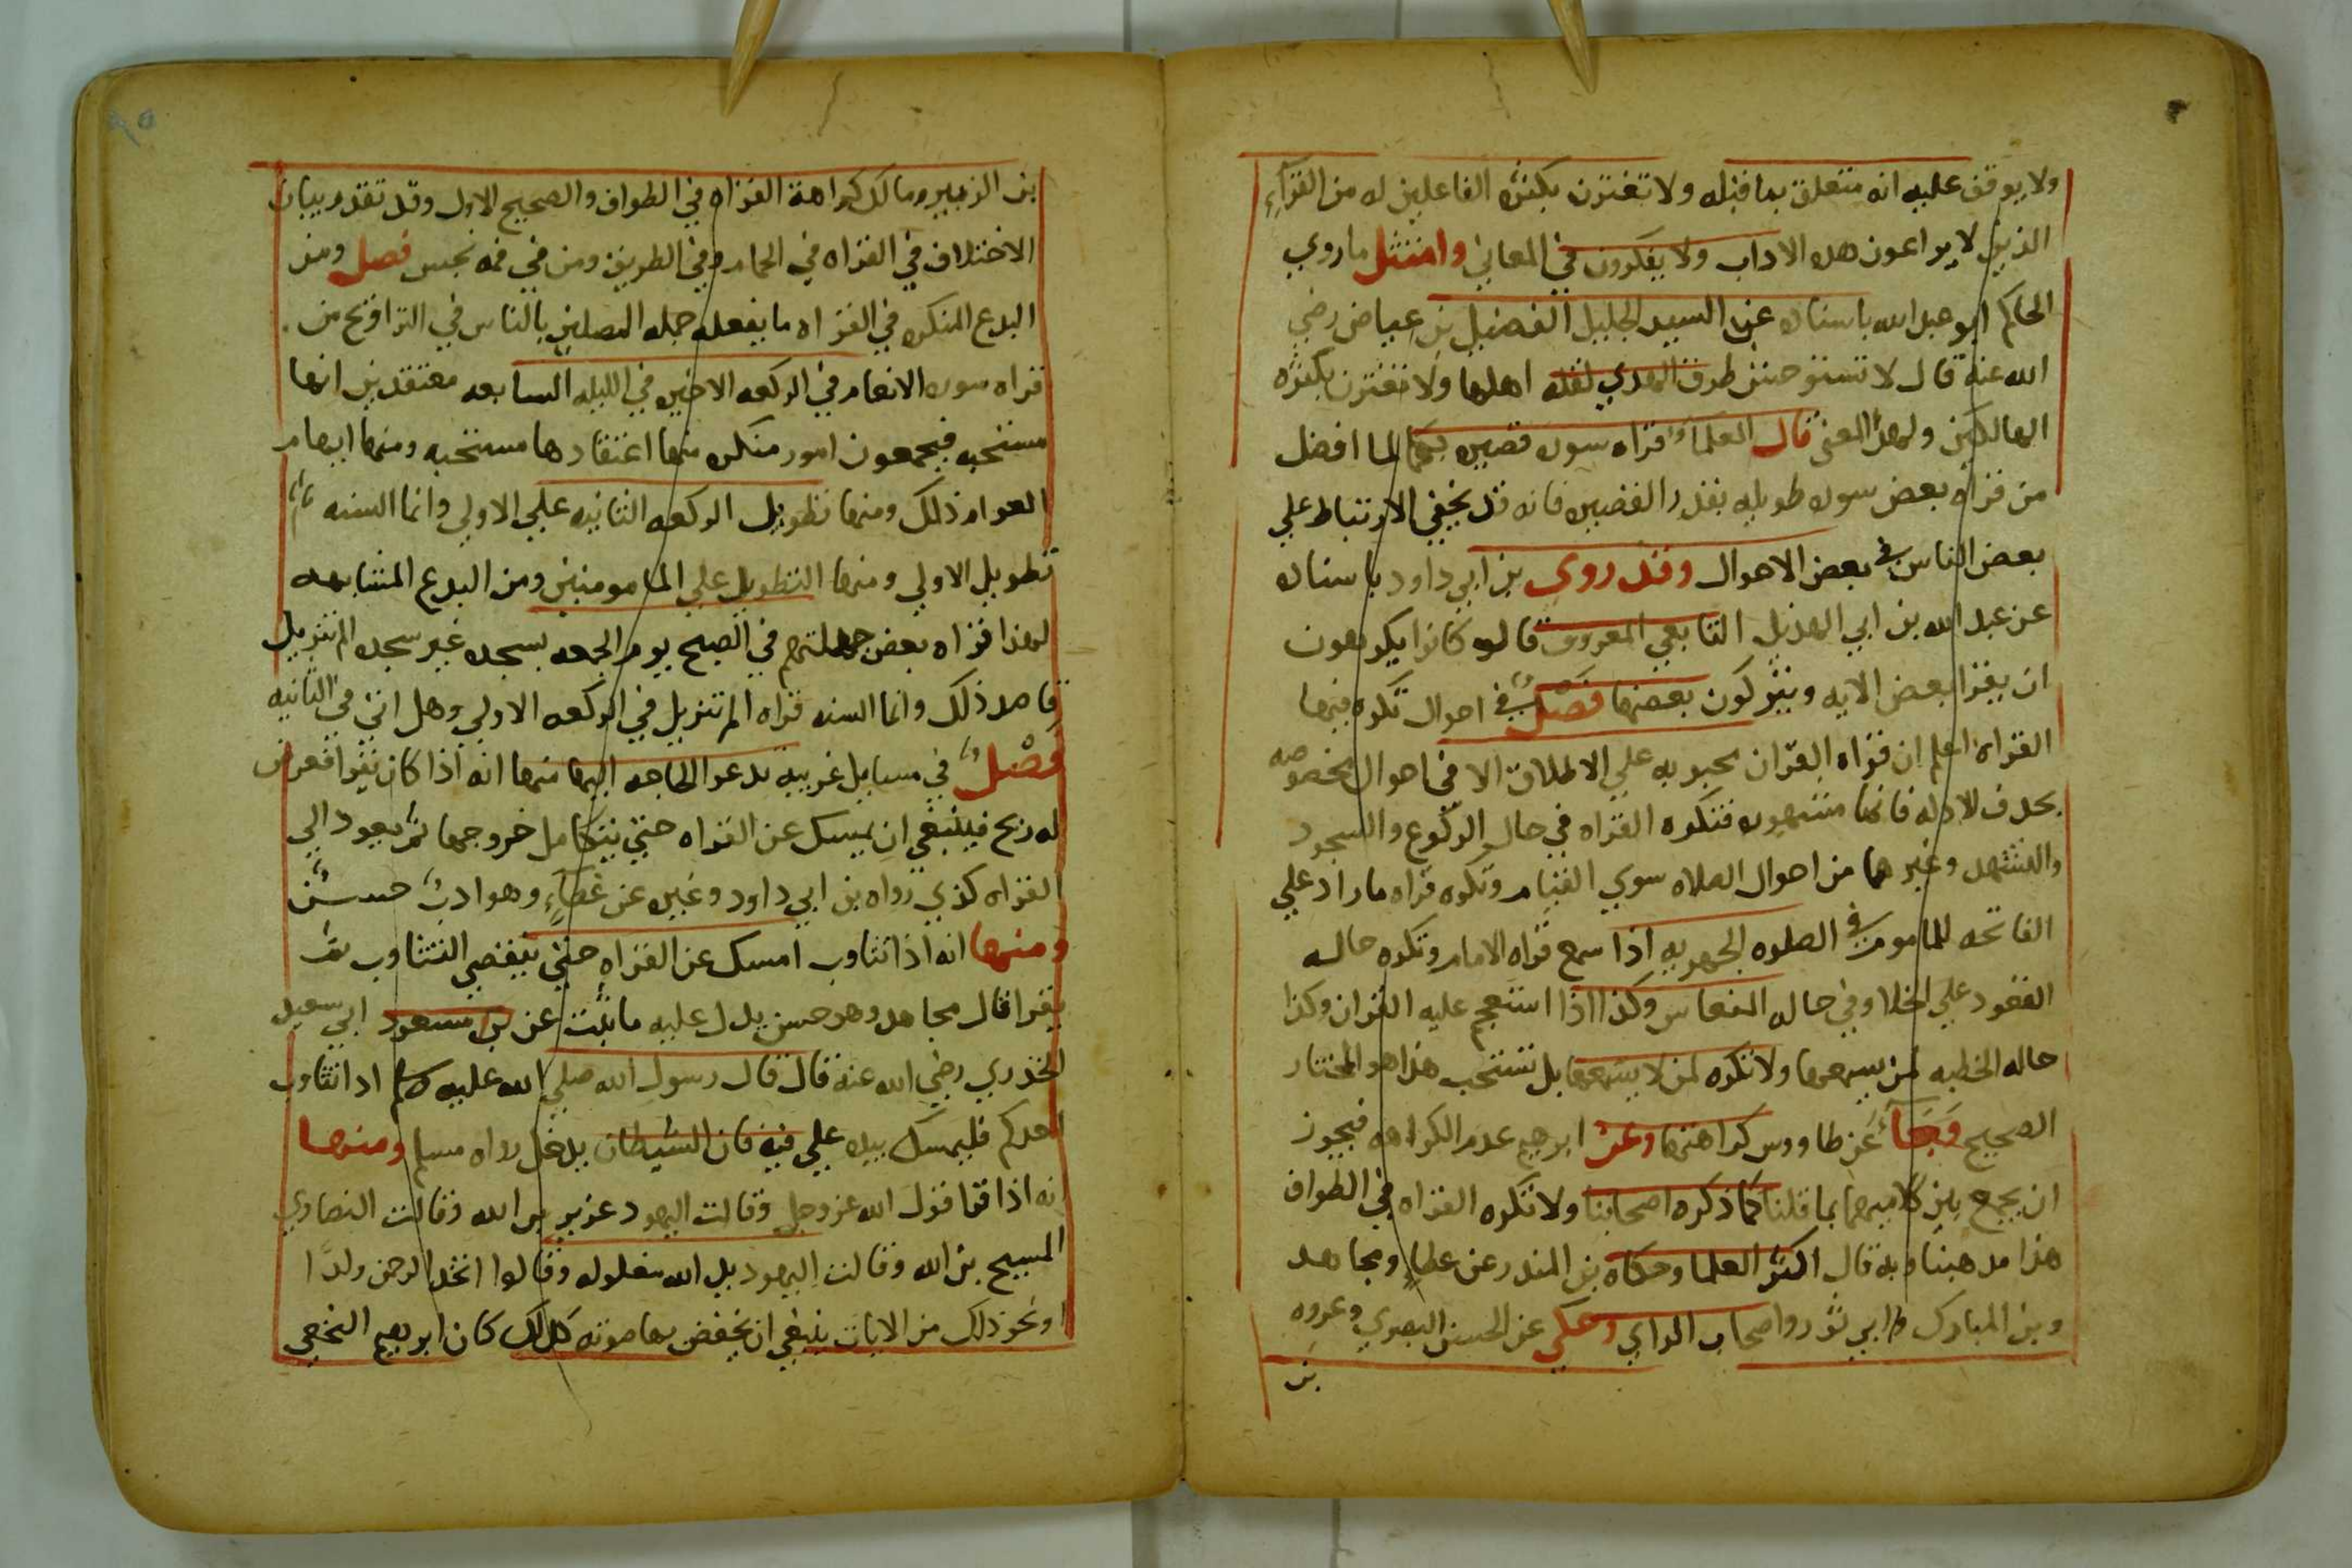 ولا يوقف عليه انه متعلق بما قبله ولا تغترن بكثره الفاعلين له من القرآءِ
الذين لا يراعون هده الاداب ولا يفكرون في المعاني وامتثل ماروي
الحاكم ابو عبد الله باسناده عن السيد الجليل الفضيل بن عياض رضي
الله عنه قال لا تستوحشن طرق الهدي لقله اهلها ولا تغترن بكثره
الهالكين ولهذا المعني قال العلما قراه سوره قصيره بكمالها افضل
من قراه بعض سوره طويله بقدر القصيره فانه قد يخفي الارتباط علي
بعض الناس في بعض الاحوال وقد روي بن ابي داود باسناده
عن عبد الله بن ابي الهذيل التابعي المعروف قالو كانوا يكرهون
ان يقرا بعض الايه ويتركون بعضها فصل في احوال تكره فيها
القراه اعلم ان قراه القران محبوبه علي الاطلاق الا في احوال مخصوصه
بحدف الادله فانها مشهوره فتكره القراه في حال الركوع والسجود
والتشهد وغيرهما من احوال الصلاه سوي القيام وتكره قراه مازاد علي
الفاتحه للماموم في الصلوه الجهريه اذا سمع قراه الامام وتكره حاله
القعود علي الخلا وفي حاله النعاس وكذا اذا استعجم عليه القران وكذا
حاله الخطبه لمن يسمعها ولا تكره لمن لا يسمعها بل تستحب هذا هو المختار
الصحيح وجآء عن طاووس كراهتها وعن ابرهيم عدم الكراهه فيجوز
ان يجمع بين كلاميهما بما قلنا كما ذكره اصحابنا ولا تكره القراه في الطواف
هذا مدهبنا وبه قال اكثر العلما وحكاه بن المندر عن عطاءٍ ومجاهد
وبن المبارك وابي ثور واصحاب الراي وحكي عن الحسن البصري وعروه
بن
بن الزبير ومالك كراهة القراه في الطواف والصحيح الاول وقد تقدم بيان
الاختلاف في القراه في الحمام وفي الطريق ومن في فمه نجس فصل ومن
البدع المنكره في القراه ما يفعله جهله المصلين بالناس في التراويح من
قراه سوره الانعام في الركعه الاخيره في الليله السابعه معتقدين انها
مستحبه فيجمعون امور منكره منها اعتقادها مستحبه ومنها ايهام
العوام ذلك ومنها تطويل الركعه الثانيه علي الاولي وانما السنه
تطويل الاولي ومنها التطويل علي المامومين ومن البدع المشابهه
لهذا قراه بعض جهلتهم في الصبح يوم الجمعه بسجده غير سجده الم تنزيل
قاصد ذلك وانما السنه قراه الم تنزيل في الركعه الاولي وهل اتي في الثانيه
فصل في مسايل غريبه تدعو الحاجه اليها منها انه اذا كان يقرا فعرض
له ريح فينبغي ان يمسك عن القراه حتي يتكامل خروجها ثم يعود الي
القراه كذي رواه بن ابي داود وغيره عن عطآءٍ وهو ادب حسن
ومنها انه اذا تثاوب امسك عن القراه حتي ينقضي التثاوب ثم
يقرا قال مجاهد وهو حسن يدل عليه ما ثبت عن بن مسعود ابي سعيد
الخدري رضي الله عنه قال قال رسول الله صلي الله عليه وسلم ادا تثاوب
احدكم فليمسك بيده علي فيه فان الشيطان يدخل رواه مسلم ومنها
انه اذا قرا قول الله عز وجل وقالت اليهود عزير بن الله وقالت النصاري
المسيح بن الله وقالت اليهود يد الله مغلوله وقالوا اتخد الرحمن ولدًا
او نحو ذلك من الايات ينبغي ان يخفض بها صوته كذلك كان ابرهيم النخعي